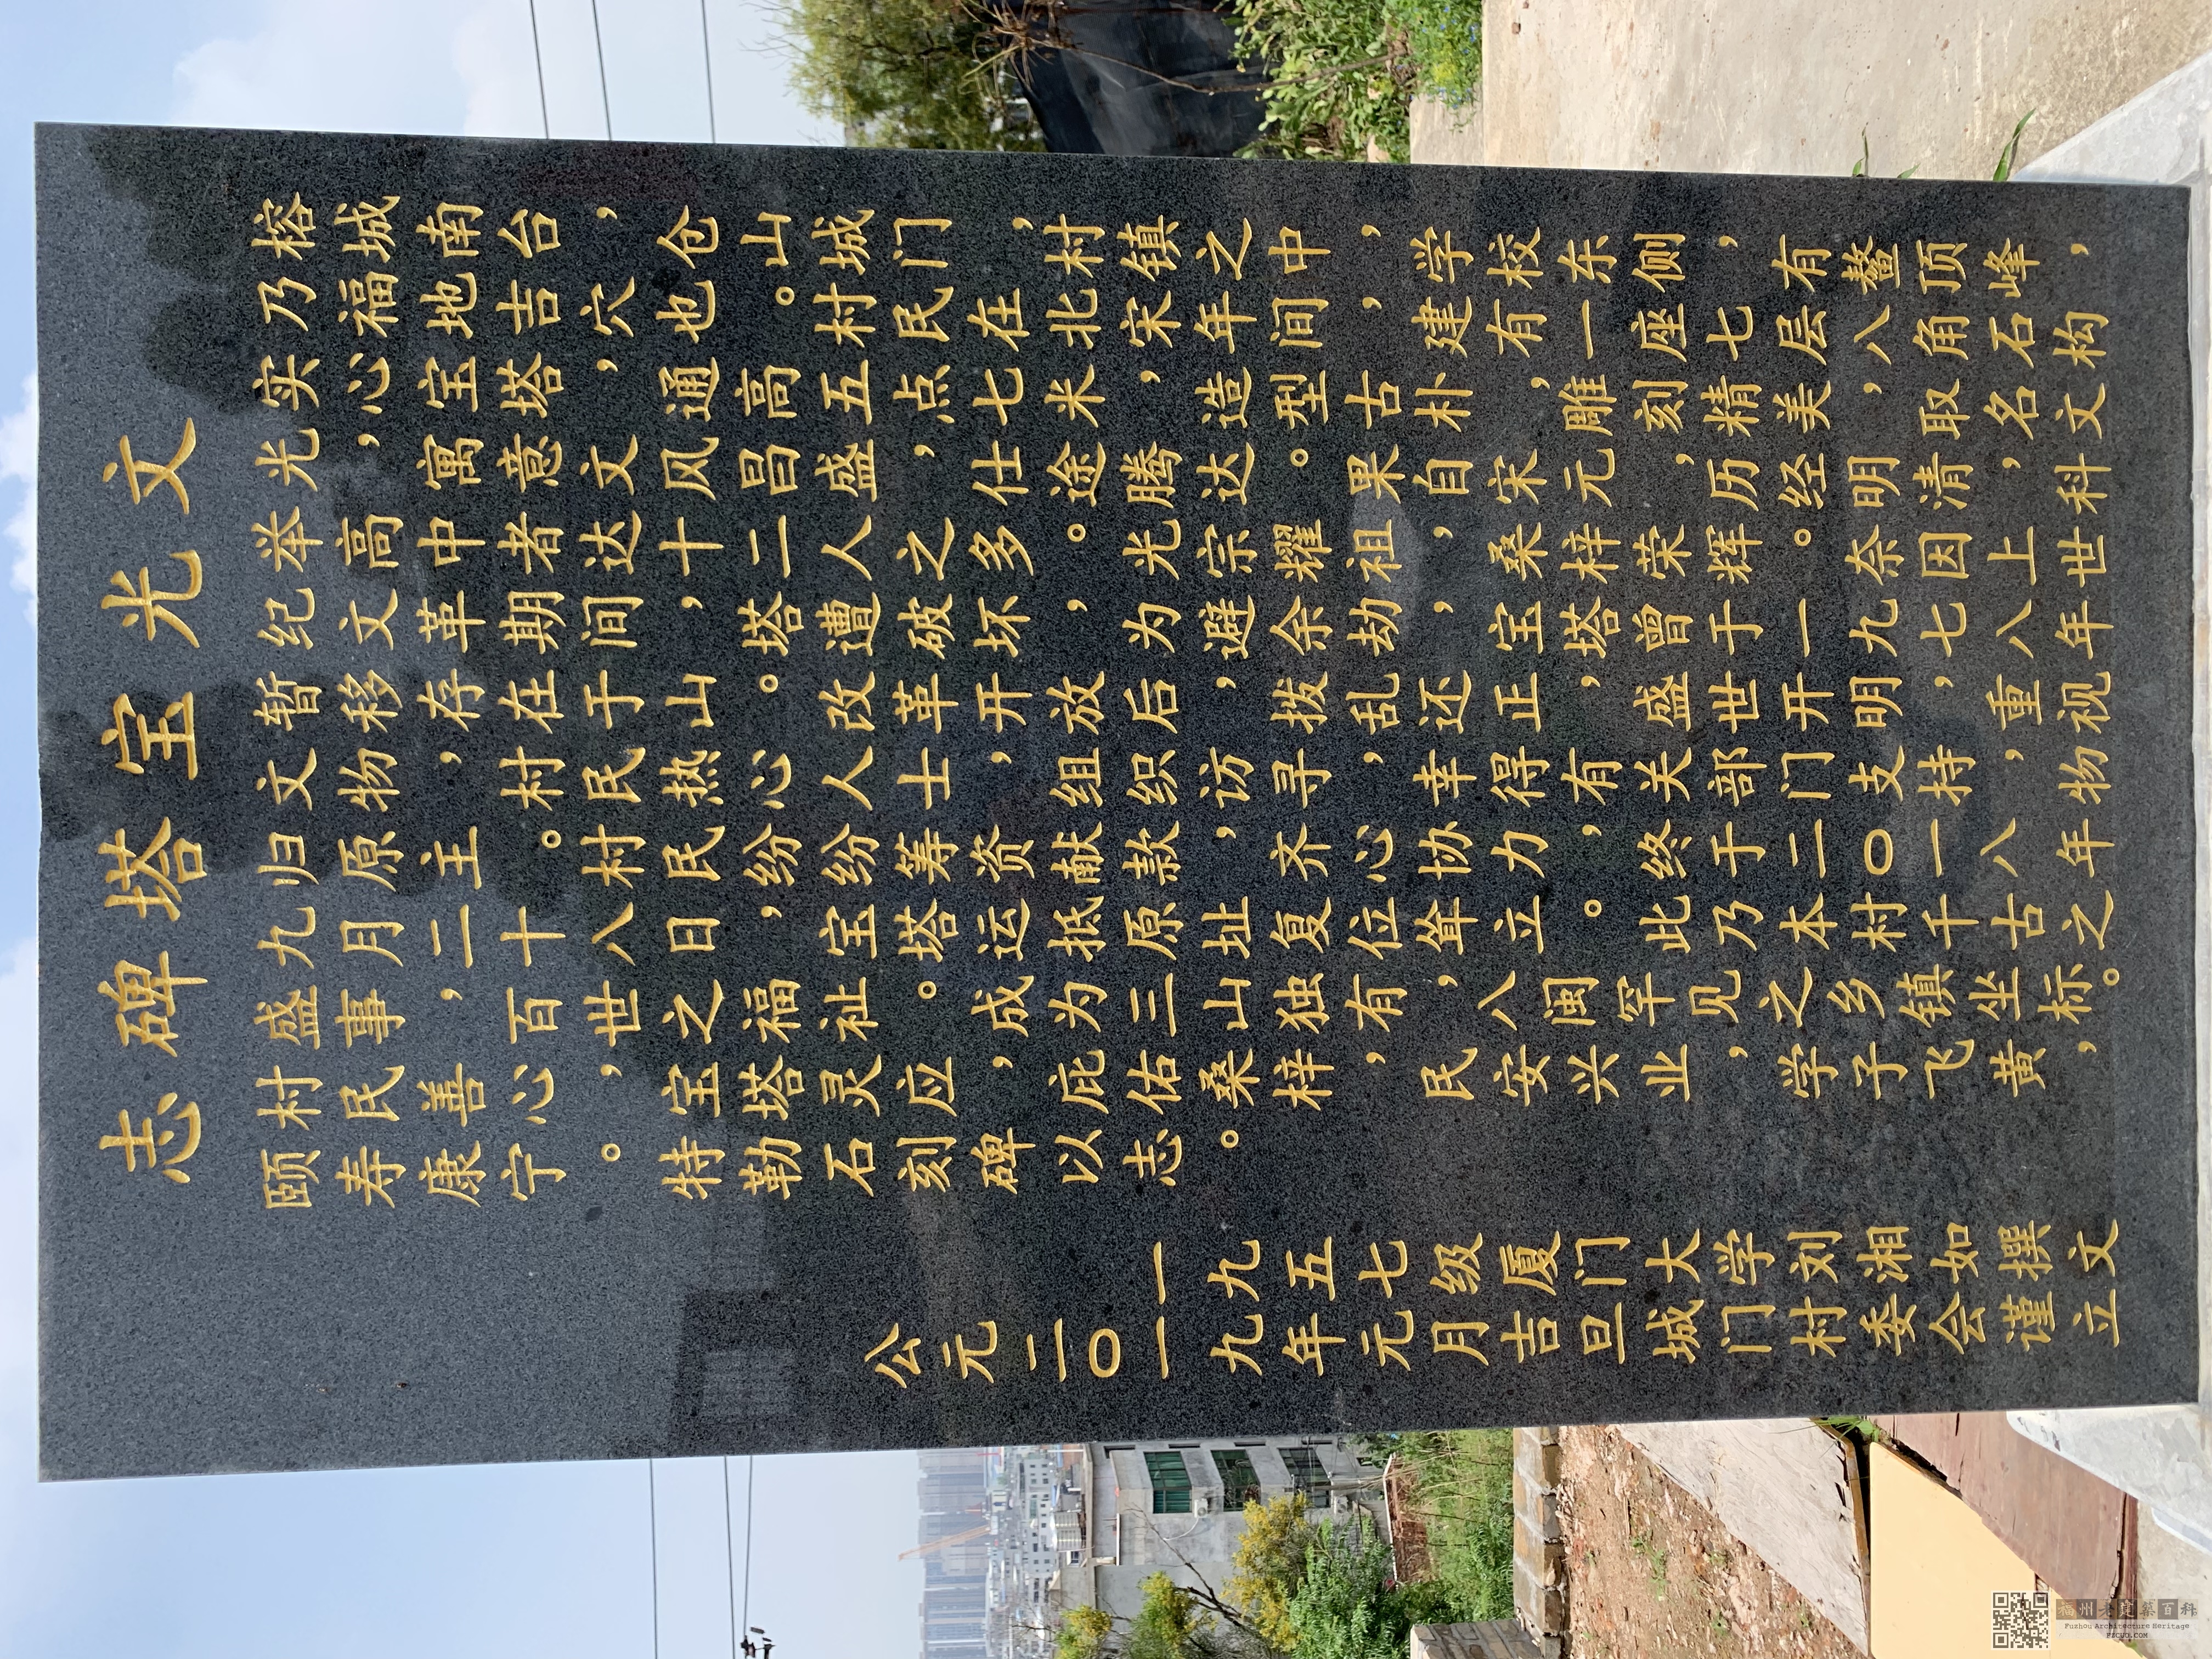 文光宝塔碑志
榕城南台，仓山城门，村镇之中，学校东侧，有鳌顶峰，
乃福地吉穴也。村民在北宋年间，建有一座七层八角石构
实心宝塔，通高五点七米，造型古朴，雕刻精美，取名文
光，寓意文风昌盛，仕途腾达。果自宋元，历经明清，科
举高中者达十二人之多。光宗耀祖，桑梓荣辉。奈因上世
纪文革期间，塔遭破坏，为避余劫，宝塔曾于一九七八年
暂移存在于山。改革开放后，拨乱还正，盛世开明，重视
文物，村民热心人士，组织访寻，幸得有关部门支持，物
归原主。村民纷纷筹资献款，齐心协力，终于二〇一八年
九月二十八日，宝塔运抵原址复位耸立。此乃本村千古之
盛事，百世之福祉。成为三山独有，八闽罕见之乡镇坐标。
村民善心，宝塔灵应，庇佑桑梓，民安兴业，学子飞黄，
颐寿康宁。特勒石刻碑以志。
一九五七级厦门大学刘湘如撰文
公元二〇一九年元月吉旦城门村委会谨立
福州老建筑百科
Fuzhou Architecture Heritage
FZCUO.COM